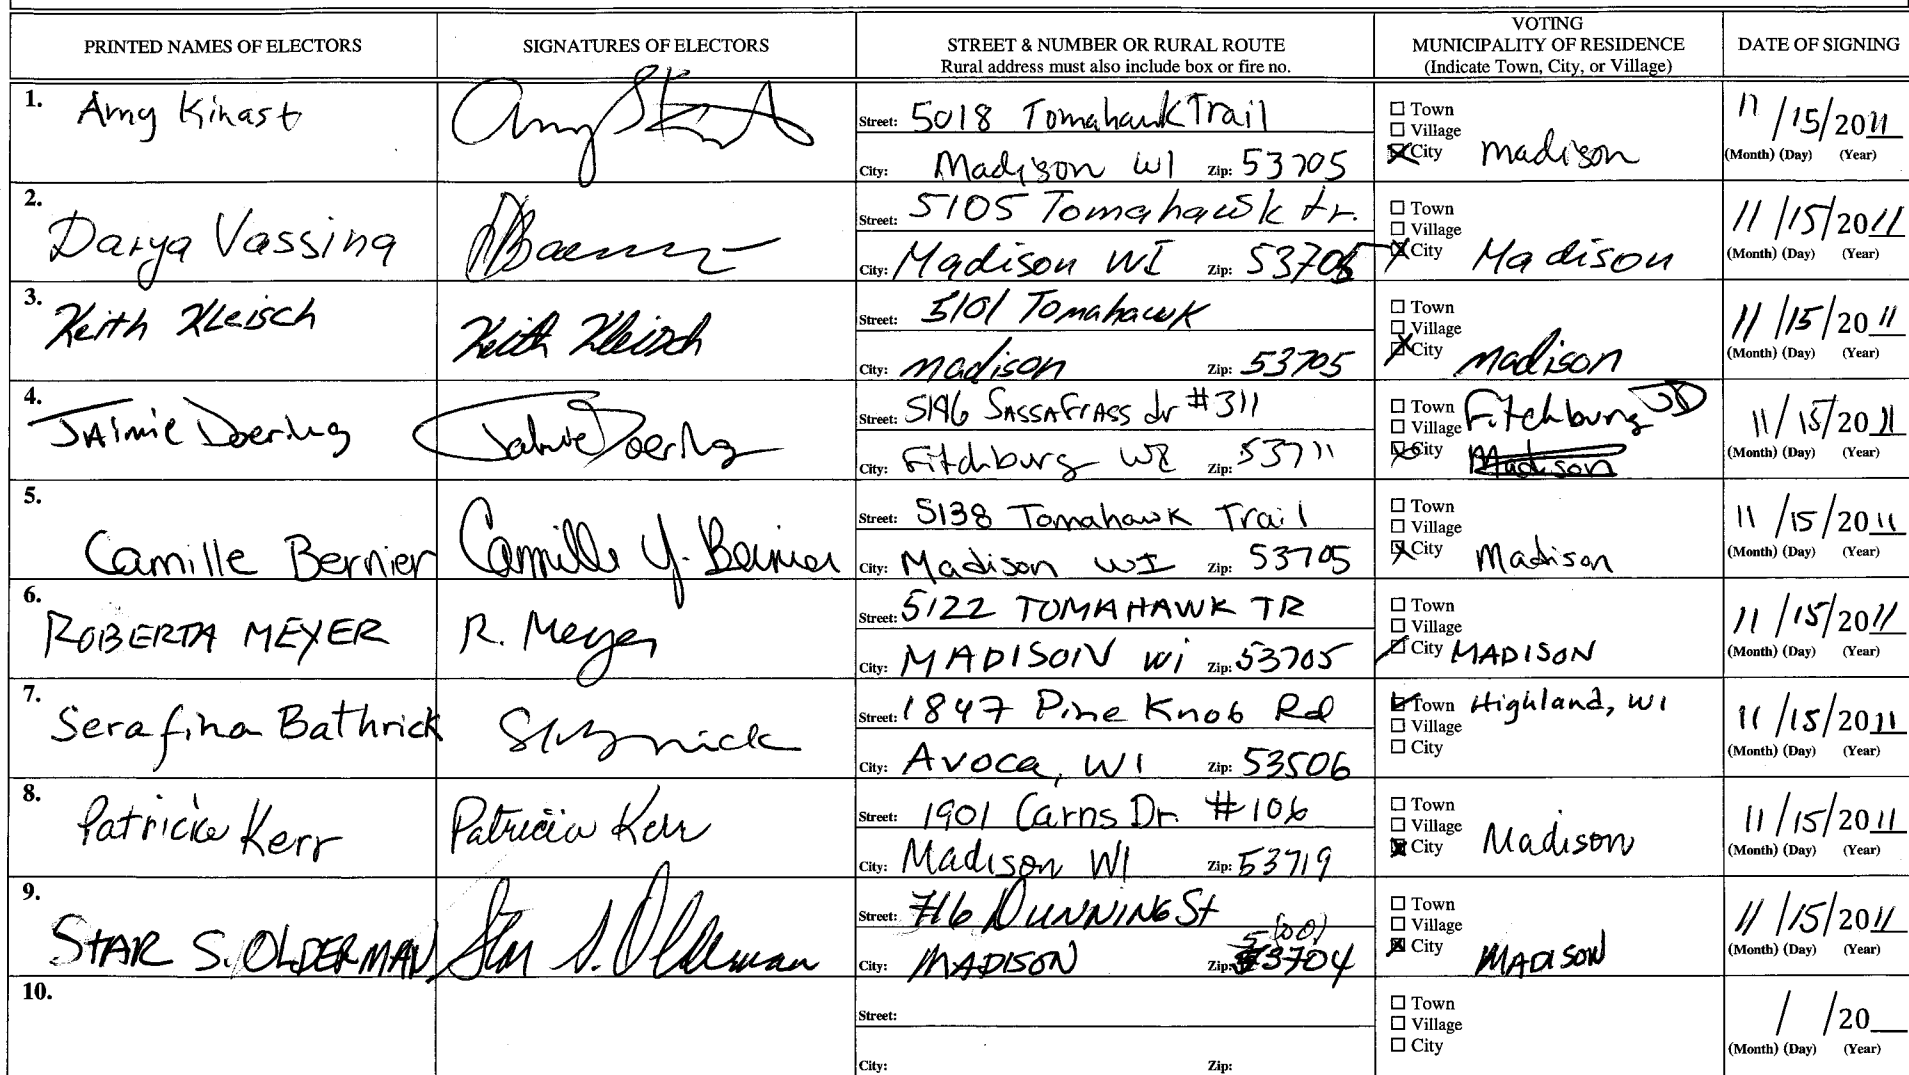 PRINTED NAMES OF ELECTORS
SIGNATURES OF ELECTORS
STREET & NUMBER OR RURAL ROUTE
Rural address must also include box or fire no.
VOTING
MUNICIPALITY OF RESIDENCE
(Indicate Town, City, or Village)
DATE OF SIGNING
1. Amy Kinast
Amy
Street: 5018 Tomahawk Trail
City: Madison WI Zip: 53705
Town
Village
City madison
11/15/2011
(Month) (Day) (Year)
2. Darya Vassina
Street: 5105 Tomahawk tr.
City: Madison WI Zip: 53705
Town
Village
City Madison
11/15/2011
(Month) (Day) (Year)
3. Keith Kleisch
Keith Kleisch
Street: 5101 Tomahawk
City: madison Zip: 53705
Town
Village
City madison
11/15/2011
(Month) (Day) (Year)
4. JAimie Doering
Jaimie Doering
Street: 5196 SASSAFrASS dr #311
City: Fitchburg WI Zip: 53711
Town Fitchburg JD
Village
City Madison
11/15/2011
(Month) (Day) (Year)
5. Camille Bernier
Camille Y. Bernier
Street: 5138 Tomahawk Trail
City: Madison WI Zip: 53705
Town
Village
City Madison
11/15/2011
(Month) (Day) (Year)
6. ROBERTA MEYER
R. Meyer
Street: 5122 TOMAHAWK TR
City: MADISON Wi Zip: 53705
Town
Village
City MADISON
11/15/2011
(Month) (Day) (Year)
7. Serafina Bathrick
Street: 1847 Pine Knob Rd
City: Avoca, WI Zip: 53506
Town Highland, WI
Village
City
11/15/2011
(Month) (Day) (Year)
8. Patricia Kerr
Patricia Kerr
Street: 1901 Carns Dr. #106
City: Madison WI Zip: 53719
Town
Village
City Madison
11/15/2011
(Month) (Day) (Year)
9. STAR S. OLDERMAN
Star S. Olderman
Street: 716 DUNNING St
City: MADISON Zip: 53704
Town
Village
City MADISON
11/15/2011
(Month) (Day) (Year)
10.
Street:
City: Zip:
Town
Village
City
/ /20
(Month) (Day) (Year)